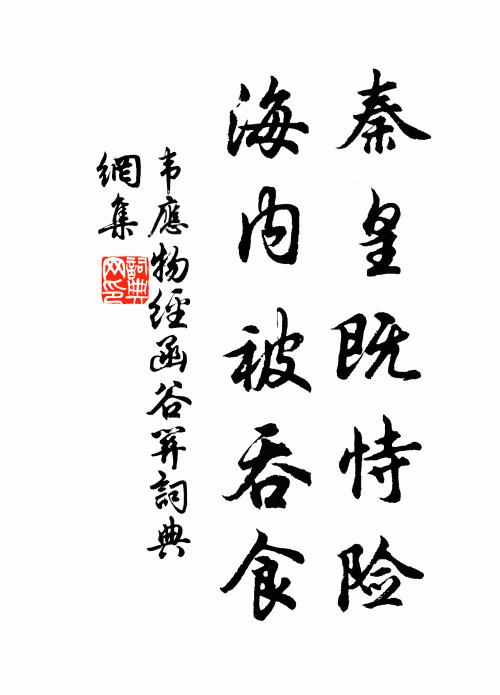 秦皇既恃险
海内被吞食
韦應物經函谷関詞典
網集
詞典
网印